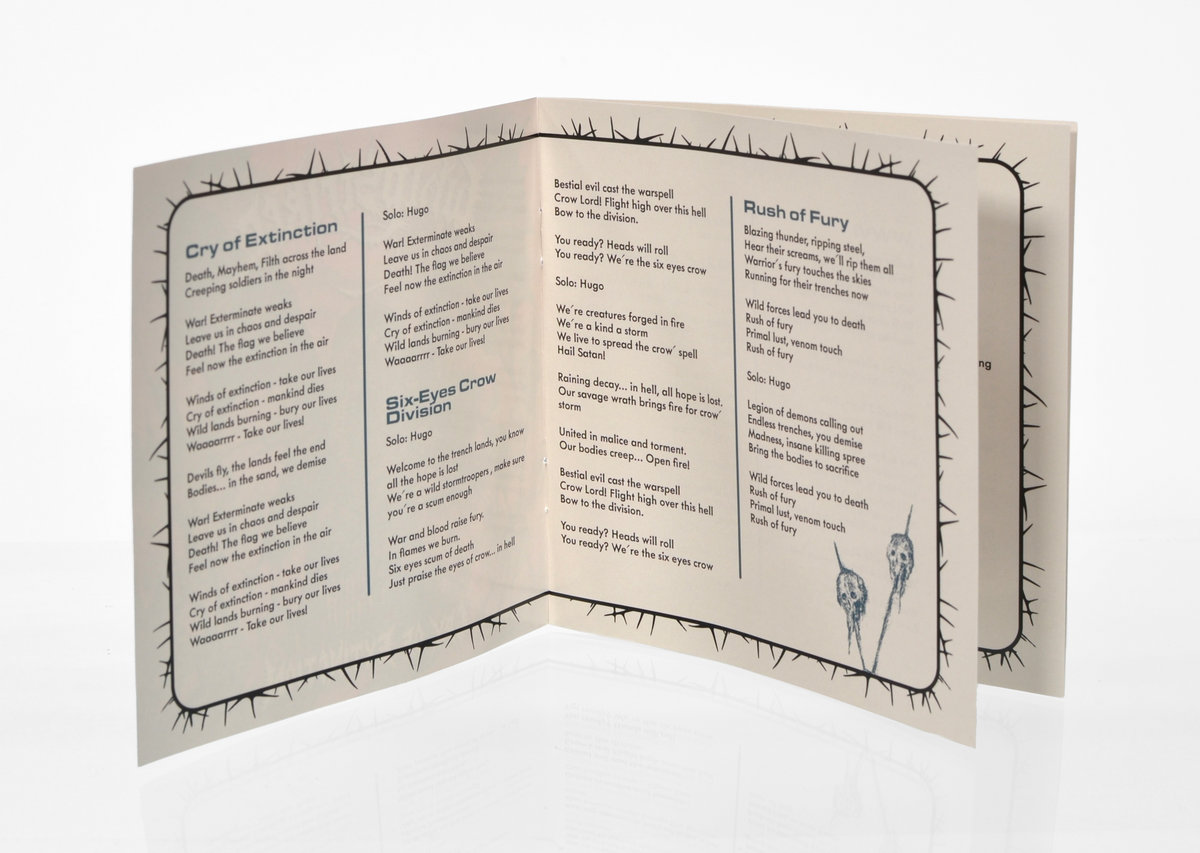 Cry of Extinction
Death, Mayhem, Filth across the land
Creeping soldiers in the night
War! Exterminate weaks
Leave us in chaos and despair
Death! The flag we believe
Feel now the extinction in the air
Winds of extinction - take our lives
Cry of extinction - mankind dies
Wild lands burning - bury our lives
Waaaarrrr - Take our lives!
Devils fly, the lands feel the end
Bodies... in the sand, we demise
War! Exterminate weaks
Leave us in chaos and despair
Death! The flag we believe
Feel now the extinction in the air
Winds of extinction - take our lives
Cry of extinction - mankind dies
Wild lands burning - bury our lives
Waaaarrrr - Take our lives!
Solo: Hugo
War! Exterminate weaks
Leave us in chaos and despair
Death! The flag we believe
Feel now the extinction in the air
Winds of extinction - take our lives
Cry of extinction - mankind dies
Wild lands burning - bury our lives
Waaaarrrr - Take our lives!
Six-Eyes Crow
Division
Solo: Hugo
Welcome to the trench lands, you know
all the hope is lost
We´re a wild stormtroopers, make sure
you´re a scum enough
War and blood raise fury.
In flames we burn.
Six eyes scum of death
Just praise the eyes of crow... in hell
Bestial evil cast the warspell
Crow Lord! Flight high over this hell
Bow to the division.
You ready? Heads will roll
You ready? We´re the six eyes crow
Solo: Hugo
We´re creatures forged in fire
We´re a kind a storm
We live to spread the crow´ spell
Hail Satan!
Raining decay... in hell, all hope is lost.
Our savage wrath brings fire for crow´
storm
United in malice and torment.
Our bodies creep... Open fire!
Bestial evil cast the warspell
Crow Lord! Flight high over this hell
Bow to the division.
You ready? Heads will roll
You ready? We´re the six eyes crow
Rush of Fury
Blazing thunder, ripping steel,
Hear their screams, we´ll rip them all
Warrior´s fury touches the skies
Running for their trenches now
Wild forces lead you to death
Rush of fury
Primal lust, venom touch
Rush of fury
Solo: Hugo
Legion of demons calling out
Endless trenches, you demise
Madness, insane killing spree
Bring the bodies to sacrifice
Wild forces lead you to death
Rush of fury
Primal lust, venom touch
Rush of fury
ng